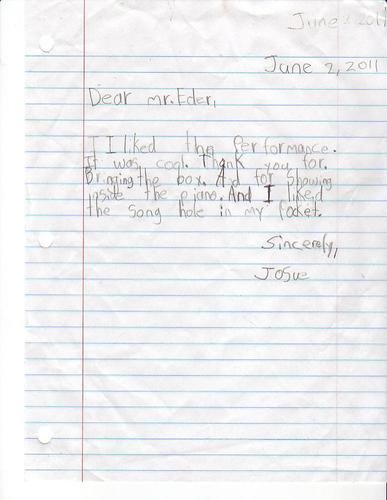 June 2 2011
June 2, 2011
Dear mr. Eder,
I I liked the performance.
It was cool. Thank you for.
Bringing the box. And for Showing
inside the piano. And I liked
the song hole in my Pocket.
Sincerely,
Josue